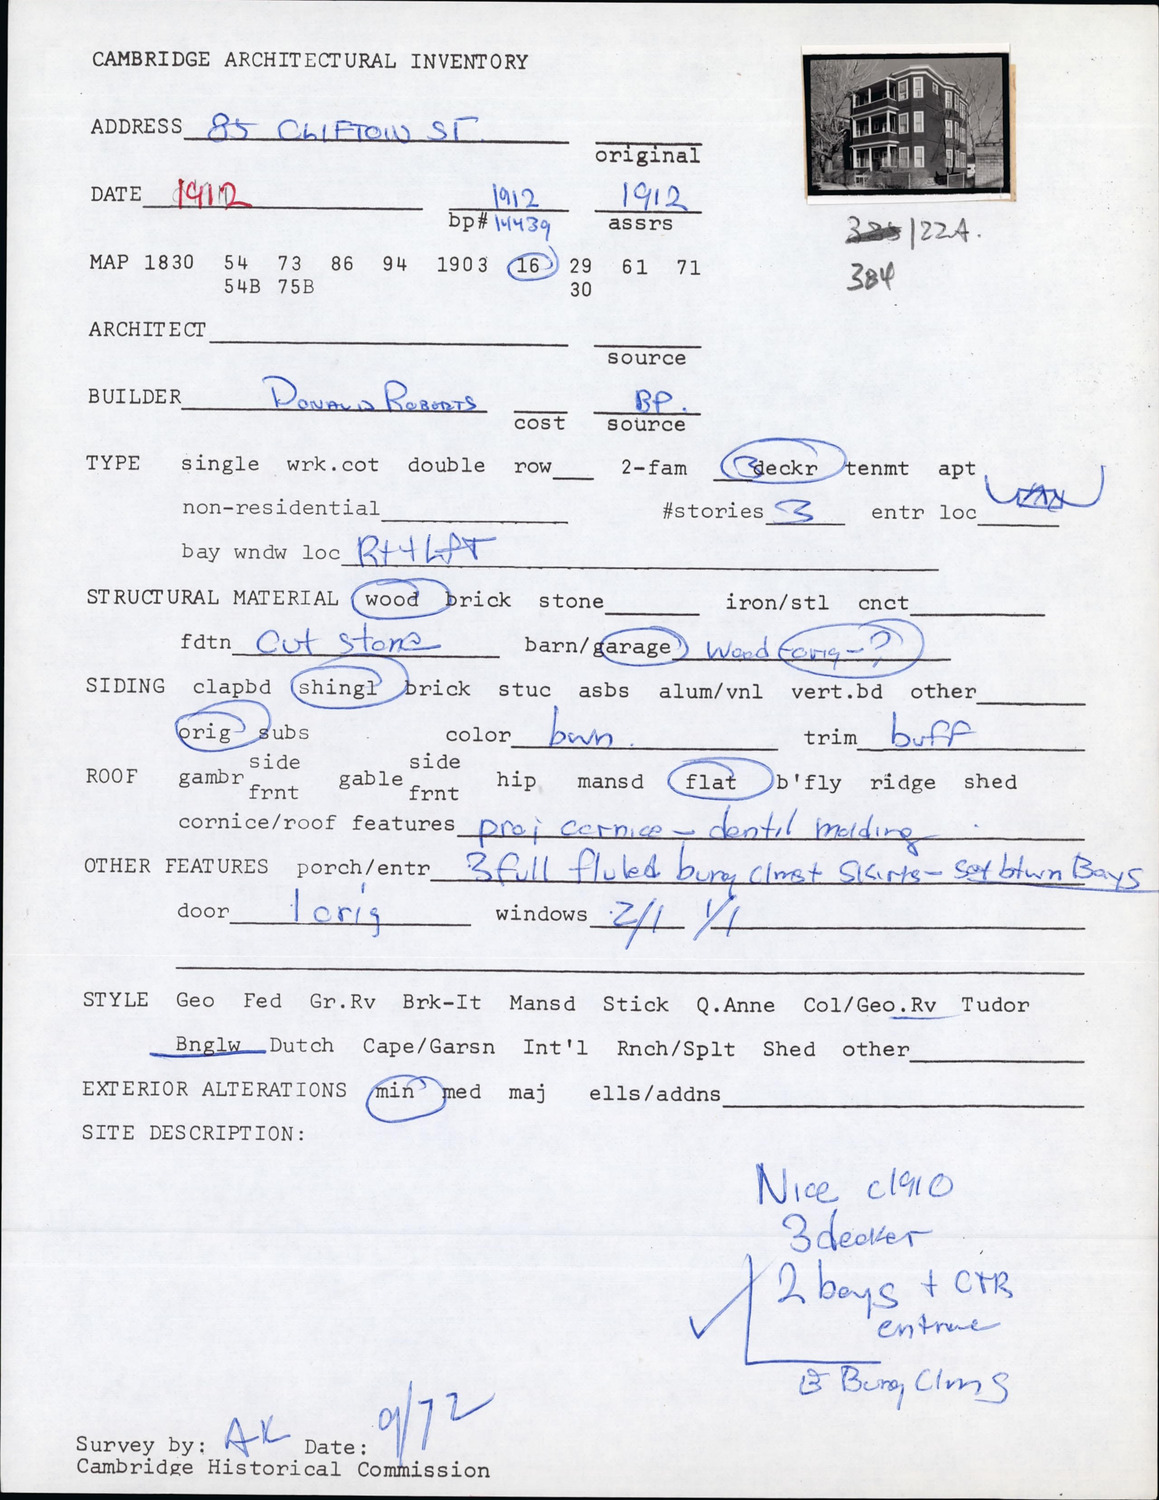 CAMBRIDGE ARCHITECTURAL INVENTORY
ADDRESS 85 CLIFTON ST.
original
DATE 1912 1912 1912
bp# 14439 assrs
335/122A.
384
MAP 1830 54 73 86 94 1903 16 29 61 71
54B 75B 30
ARCHITECT
source
BUILDER DONALD ROBERTS BP.
cost source
TYPE single wrk.cot double row 2-fam 3 deckr tenmt apt
non-residential #stories 3 entr loc
bay wndw loc Rt + Lft
STRUCTURAL MATERIAL wood brick stone iron/stl cnct
fdtn Cut stone barn/garage Wood orig-?
SIDING clapbd shingl brick stuc asbs alum/vnl vert.bd other
orig subs color bwn. trim buff
ROOF gambr side frnt gable side frnt hip mansd flat b'fly ridge shed
cornice/roof features proj cornice - dentil molding
OTHER FEATURES porch/entr 3 full fluted clmst Skirts - set btwn Bays
door 1 orig windows 2/1 1/1
STYLE Geo Fed Gr.Rv Brk-It Mansd Stick Q.Anne Col/Geo.Rv Tudor
Bnglw Dutch Cape/Garsn Int'l Rnch/Splt Shed other
EXTERIOR ALTERATIONS min med maj ells/addns
SITE DESCRIPTION:
Nice c1910
3 decker
2 bays + CTR
entrnce
Clmns
Survey by: AK Date: 9/72
Cambridge Historical Commission